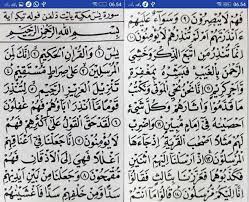 06.54
سورة يس مكية
بِسْمِ اللهِ الرَّحْمٰنِ الرَّحِيْمِ
يٰسٓ ۝ وَالْقُرْاٰنِ الْحَكِيْمِ ۝ اِنَّكَ لَمِنَ
الْمُرْسَلِيْنَ ۝ عَلٰى صِرَاطٍ مُّسْتَقِيْمٍ ۝
تَنْزِيْلَ الْعَزِيْزِ الرَّحِيْمِ ۝ لِتُنْذِرَ قَوْمًا
مَّآ اُنْذِرَ اٰبَآؤُهُمْ فَهُمْ غٰفِلُوْنَ ۝
لَقَدْ حَقَّ الْقَوْلُ عَلٰٓى اَكْثَرِهِمْ فَهُمْ
لَا يُؤْمِنُوْنَ ۝ اِنَّا جَعَلْنَا فِيْٓ اَعْنَاقِهِمْ
اَغْلٰلًا فَهِيَ اِلَى الْاَذْقَانِ فَهُمْ
مُّقْمَحُوْنَ ۝ وَجَعَلْنَا مِنْۢ بَيْنِ اَيْدِيْهِمْ
سَدًّا وَّمِنْ خَلْفِهِمْ سَدًّا فَاَغْشَيْنٰهُمْ
06.54
فَهُمْ لَا يُبْصِرُوْنَ ۝ وَسَوَآءٌ عَلَيْهِمْ
ءَاَنْذَرْتَهُمْ اَمْ لَمْ تُنْذِرْهُمْ لَا يُؤْمِنُوْنَ ۝
اِنَّمَا تُنْذِرُ مَنِ اتَّبَعَ الذِّكْرَ وَخَشِيَ
الرَّحْمٰنَ بِالْغَيْبِ فَبَشِّرْهُ بِمَغْفِرَةٍ
وَّاَجْرٍ كَرِيْمٍ ۝ اِنَّا نَحْنُ نُحْيِ الْمَوْتٰى
وَنَكْتُبُ مَا قَدَّمُوْا وَاٰثَارَهُمْ وَكُلَّ شَيْءٍ
اَحْصَيْنٰهُ فِيْٓ اِمَامٍ مُّبِيْنٍ ۝ وَاضْرِبْ
لَهُمْ مَّثَلًا اَصْحٰبَ الْقَرْيَةِ اِذْ جَآءَهَا
الْمُرْسَلُوْنَ ۝ اِذْ اَرْسَلْنَآ اِلَيْهِمُ اثْنَيْنِ
فَكَذَّبُوْهُمَا فَعَزَّزْنَا بِثَالِثٍ فَقَالُوْٓا
اِنَّآ اِلَيْكُمْ مُّرْسَلُوْنَ ۝ قَالُوْا مَآ اَنْتُمْ